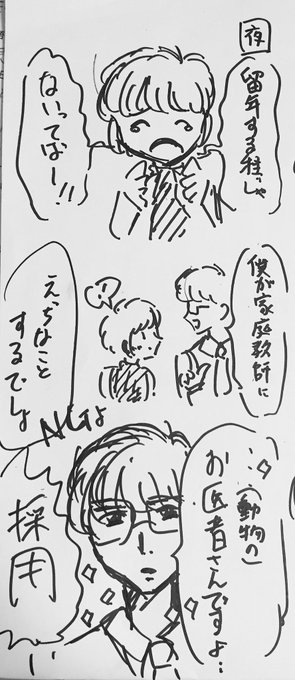 夜
留年する程じゃ
ないってばー!!
僕が家庭教師に
えっちなこと
するでしょ
NGよ
(動物の)
お医者さんですよ…
採用